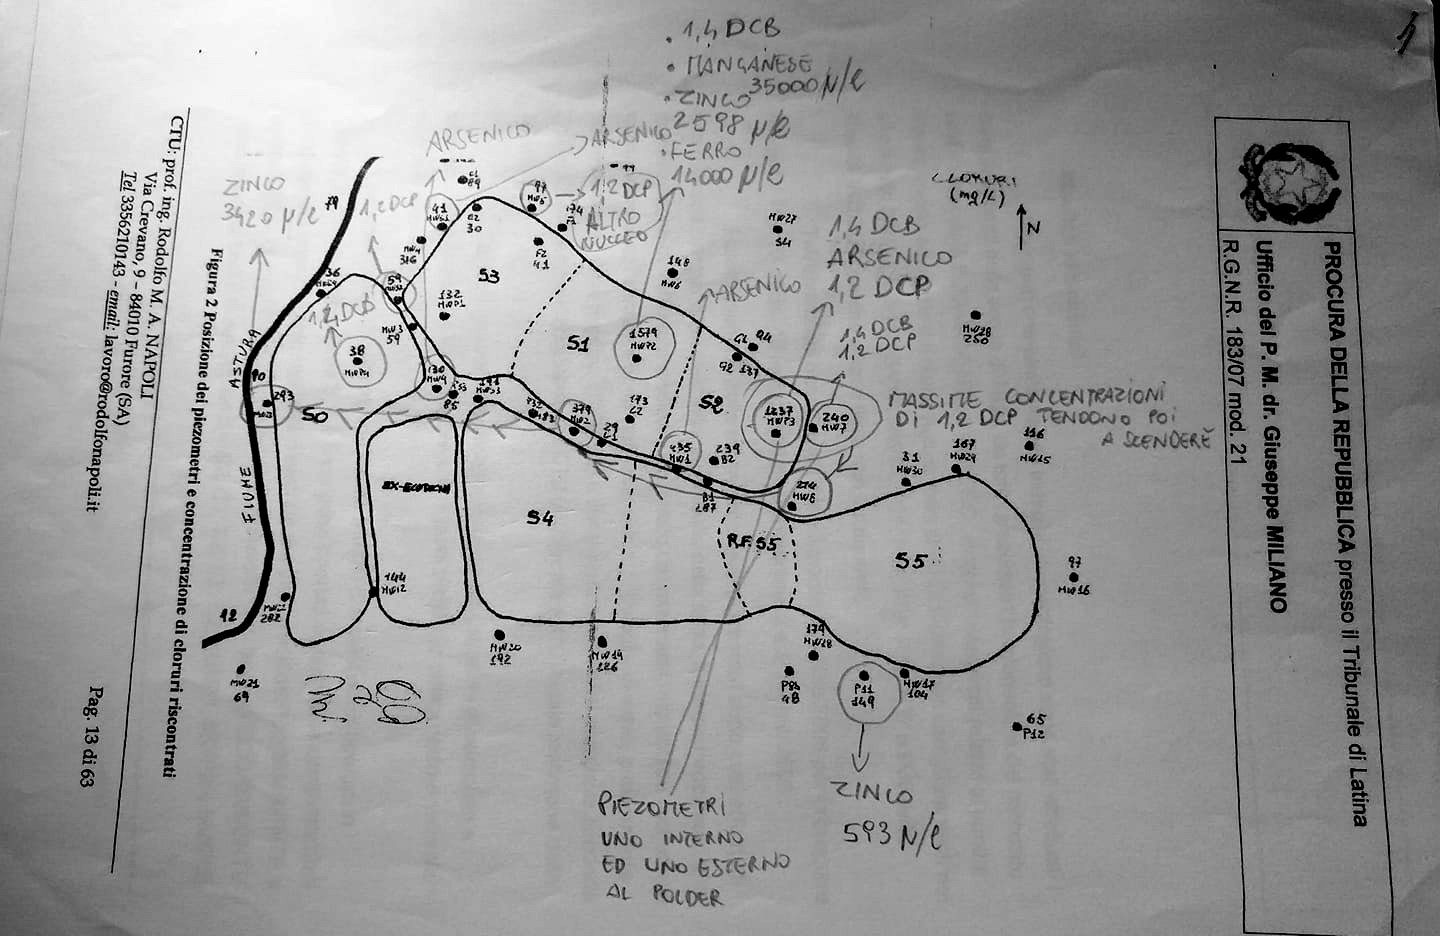 1
PROCURA DELLA REPUBBLICA presso il Tribunale di Latina
Ufficio del P. M. dr. Giuseppe MILIANO
R.G.N.R. 183/07 mod. 21
. 1,4 DCB
. MANGANESE
35000 µ/l
. ZINCO
2598 µ/l
. FERRO
14000 µ/l
ARSENICO
ARSENICO
ZINCO
3420 µ/l
1,2 DCP
1,2 DCP
ALTRO
NUCLEO
CLORURI
(mg/L)
N
1,4 DCB
ARSENICO
1,2 DCP
1,4 DCB
1,2 DCP
ARSENICO
1,2 DCB
MASSIME CONCENTRAZIONI
DI 1,2 DCP TENDONO POI
A SCENDERE
79
89
97
MW5
174
F1
41
E2
30
F2
41
316
MW27
54
148
MW6
MW28
250
36
59
MW3
59
132
MWP1
S3
S1
1579
MWP2
G1 94
G2 137
38
MWP4
130
MW4
85
191
432
379
MW2
29
C1
173
C2
S2
435
MW1
239
B2
1237
MWP3
240
MW7
274
MW8
B1
287
31
MW30
167
MW29
116
MW15
ASTURA
90
293
S0
FIUME
EX-ECOTECNA
S4
R.F. S5
S5
97
MW16
144
MW12
42
MW22
282
MW21
69
MW20
192
MW19
126
179
MW18
48
P11
149
MW17
104
65
P12
ZINCO
593 µ/l
PIEZOMETRI
UNO INTERNO
ED UNO ESTERNO
AL POLDER
Figura 2 Posizione dei piezometri e concentrazione di cloruri riscontrati
CTU: prof. ing. Rodolfo M. A. NAPOLI
Via Crevano, 9 – 84010 Furore (SA)
Tel 3356210143 - email: lavoro@rodolfonapoli.it
Pag. 13 di 63